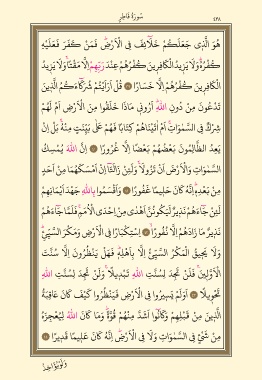 ٤٣٨
سُورَةُ فَاطِرٍ
هُوَ الَّذ۪ي جَعَلَكُمْ خَلَٓائِفَ فِي الْاَرْضِۜ فَمَنْ كَفَرَ فَعَلَيْهِ
كُفْرُهُۜ وَلَا يَز۪يدُ الْكَافِر۪ينَ كُفْرُهُمْ عِنْدَ رَبِّهِمْ اِلَّا مَقْتًاۚ وَلَا يَز۪يدُ
الْكَافِر۪ينَ كُفْرُهُمْ اِلَّا خَسَارًا ﴿٣٩﴾ قُلْ اَرَاَيْتُمْ شُرَكَٓاءَكُمُ الَّذ۪ينَ
تَدْعُونَ مِنْ دُونِ اللّٰهِۜ اَرُون۪ي مَاذَا خَلَقُوا مِنَ الْاَرْضِ اَمْ لَهُمْ
شِرْكٌ فِي السَّمٰوَاتِۚ اَمْ اٰتَيْنَاهُمْ كِتَابًا فَهُمْ عَلٰى بَيِّنَتٍ مِنْهُۚ بَلْ اِنْ
يَعِدُ الظَّالِمُونَ بَعْضُهُمْ بَعْضًا اِلَّا غُرُورًا ﴿٤٠﴾ اِنَّ اللّٰهَ يُمْسِكُ
السَّمٰوَاتِ وَالْاَرْضَ اَنْ تَزُولَاۚ وَلَئِنْ زَالَتَٓا اِنْ اَمْسَكَهُمَا مِنْ اَحَدٍ
مِنْ بَعْدِه۪ۜ اِنَّهُ كَانَ حَل۪يمًا غَفُورًا ﴿٤١﴾ وَاَقْسَمُوا بِاللّٰهِ جَهْدَ اَيْمَانِهِمْ
لَئِنْ جَٓاءَهُمْ نَذ۪يرٌ لَيَكُونُنَّ اَهْدٰى مِنْ اِحْدَى الْاُمَمِۚ فَلَمَّا جَٓاءَهُمْ
نَذ۪يرٌ مَا زَادَهُمْ اِلَّا نُفُورًاۙ ﴿٤٢﴾ اِسْتِكْبَارًا فِي الْاَرْضِ وَمَكْرَ السَّيِّئِۜ
وَلَا يَح۪يقُ الْمَكْرُ السَّيِّئُ اِلَّا بِاَهْلِه۪ۜ فَهَلْ يَنْظُرُونَ اِلَّا سُنَّتَ
الْاَوَّل۪ينَۚ فَلَنْ تَجِدَ لِسُنَّتِ اللّٰهِ تَبْد۪يلًاۚ وَلَنْ تَجِدَ لِسُنَّتِ اللّٰهِ
تَحْو۪يلًا ﴿٤٣﴾ اَوَلَمْ يَس۪يرُوا فِي الْاَرْضِ فَيَنْظُرُوا كَيْفَ كَانَ عَاقِبَةُ
الَّذ۪ينَ مِنْ قَبْلِهِمْ وَكَانُٓوا اَشَدَّ مِنْهُمْ قُوَّةًۜ وَمَا كَانَ اللّٰهُ لِيُعْجِزَهُ
مِنْ شَيْءٍ فِي السَّمٰوَاتِ وَلَا فِي الْاَرْضِۜ اِنَّهُ كَانَ عَل۪يمًا قَد۪يرًا ﴿٤٤﴾
وَلَوْ يُؤَاخِذُ